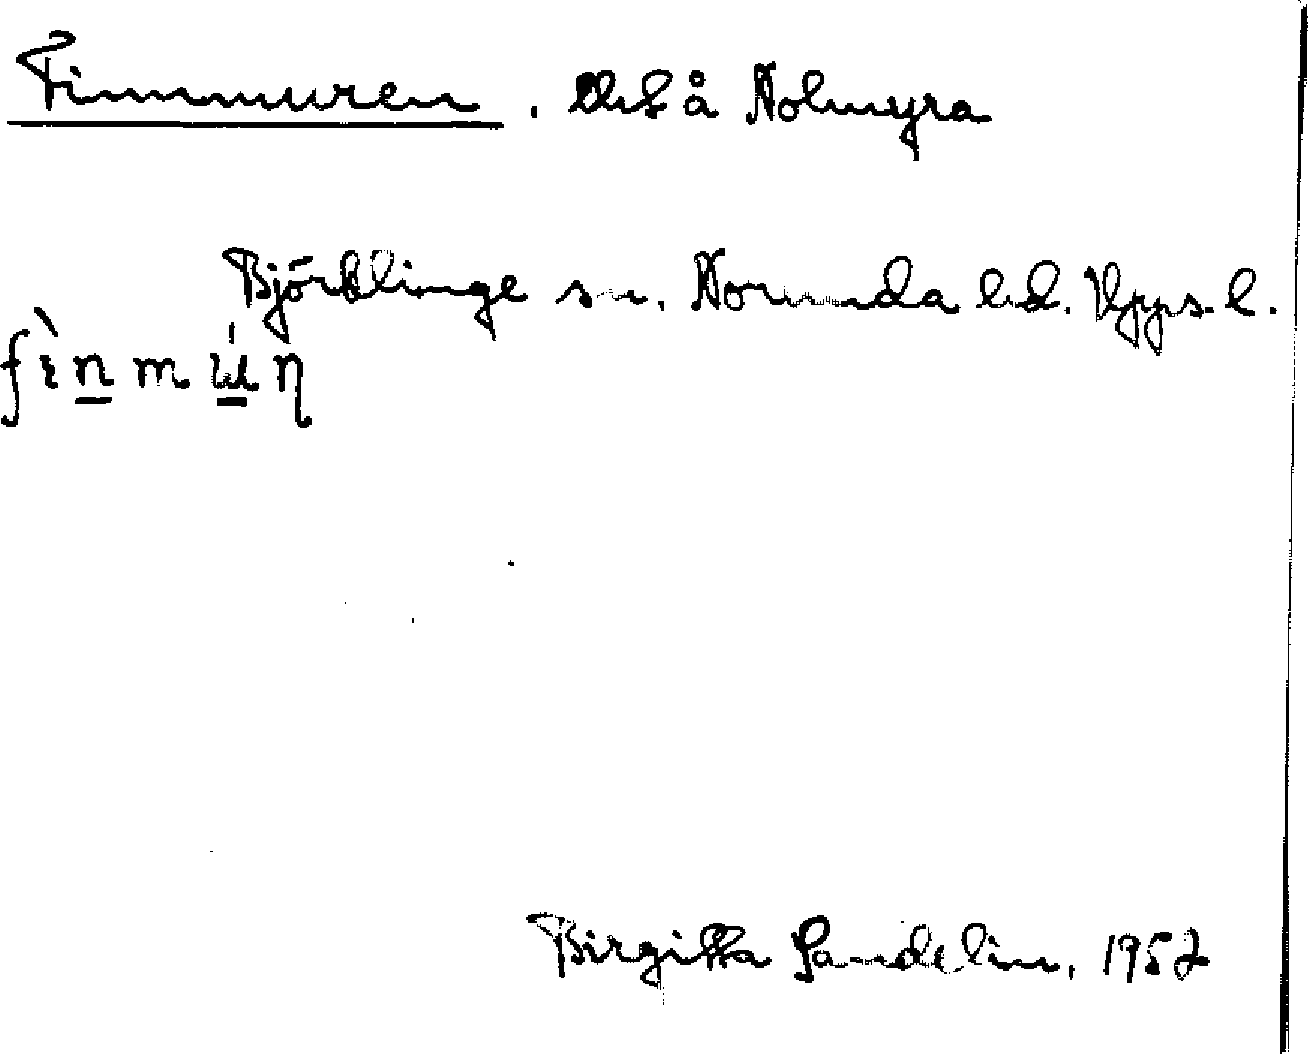 Finnmuren. Del å Nolmyra
Björklinge sn. Norunda hd. Upps. l.
Birgitta Sandelin, 1952